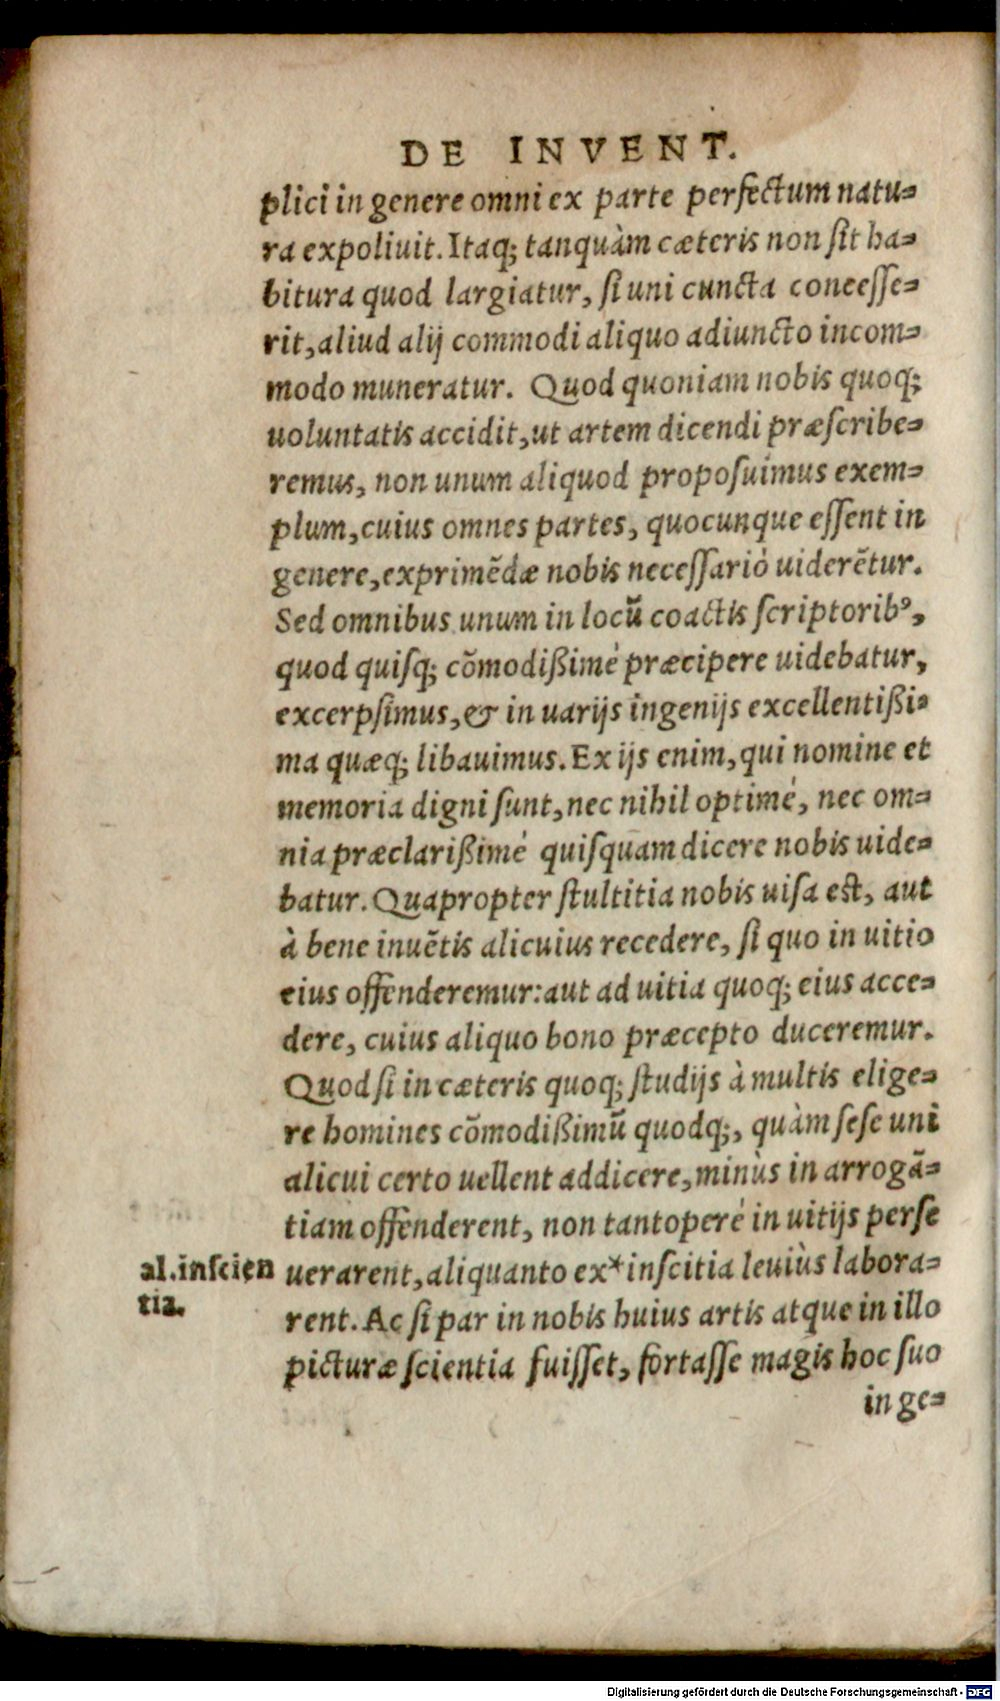 DE INVENT.
plici in genere omni ex parte perfectum natu⸗
ra expoliuit. Itaq; tanquàm cæteris non ſit ha⸗
bitura quod largiatur, ſi uni cuncta conceſſe⸗
rit, aliud alij commodi aliquo adiuncto incom⸗
modo muneratur. Quod quoniam nobis quoq;
uoluntatis accidit, ut artem dicendi præſcribe⸗
remus, non unum aliquod propoſuimus exem⸗
plum, cuius omnes partes, quocunque eſſent in
genere, exprimẽdæ nobis neceſſariò uiderẽtur.
Sed omnibus unum in locũ coactis ſcriptoribꝰ,
quod quiſq; cõmodißimè præcipere uidebatur,
excerpſimus, & in uarijs ingenijs excellentißi⸗
ma quæq; libauimus. Ex ijs enim, qui nomine et
memoria digni ſunt, nec nihil optimè, nec om⸗
nia præclarißimè quiſquam dicere nobis uide⸗
batur. Quapropter ſtultitia nobis uiſa eſt, aut
à bene inuẽtis alicuius recedere, ſi quo in uitio
eius offenderemur: aut ad uitia quoq; eius acce⸗
dere, cuius aliquo bono præcepto duceremur.
Quod ſi in cæteris quoq; ſtudijs à multis elige⸗
re homines cõmodißimũ quodq;, quàm ſeſe uni
alicui certo uellent addicere, minùs in arrogã⸗
tiam offenderent, non tantoperè in uitijs perſe
al. inſcien
tia.
uerarent, aliquanto ex* inſcitia leuiùs labora⸗
rent. Ac ſi par in nobis huius artis atque in illo
picturæ ſcientia fuiſſet, fortaſſe magis hoc ſuo
in ge⸗
Digitalisierung gefördert durch die Deutsche Forschungsgemeinschaft - DFG